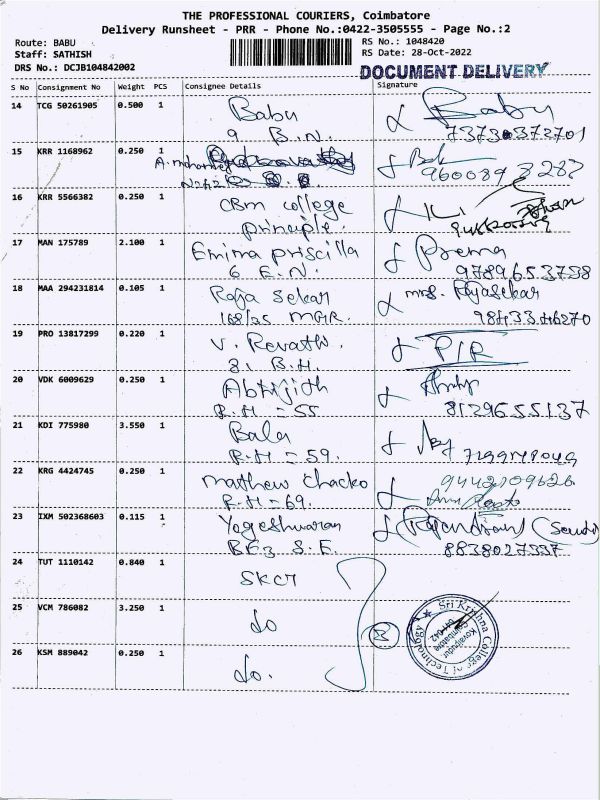 THE PROFESSIONAL COURIERS, Coimbatore
Delivery Runsheet - PRR - Phone No.:0422-3505555 - Page No.:2
Route: BABU
RS No.: 1048420
Staff: SATHISH
RS Date: 28-Oct-2022
DRS No.: DCJB104842002
DOCUMENT DELIVERY
S No Consignment No Weight PCS Consignee Details Signature
14 TCG 50261905 0.500 1 Babu Babu
9 B.N. 73730372701
15 KRR 1168962 0.250 1
9600893 3283
16 KRR 5566382 0.250 1 CBM College
principle.
17 MAN 175789 2.100 1 Emima priscilla Prema
6 E.N. 9789653738
18 MAA 294231814 0.105 1 Raja Sekar mrs. Rajasekar
168/35 MGR.
19 PRO 13817299 0.220 1 V. Revathi. P/R
81 B.H.
20 VDK 6009629 0.250 1 Abhijith
R.H = 55 8129655137
21 KDI 775980 3.550 1 Bala
R.H = 59.
22 KRG 4424745 0.250 1 Mathew Chacko 9442109626
R.H = 69.
23 IXM 502368603 0.115 1 Yogeshwaran
8838027337
24 TUT 1110142 0.840 1 SKCT
25 VCM 786082 3.250 1 do
Sri Krishna College of Technology
Kovaipudur
Coimbatore
641 042
26 KSM 889042 0.250 1 do.